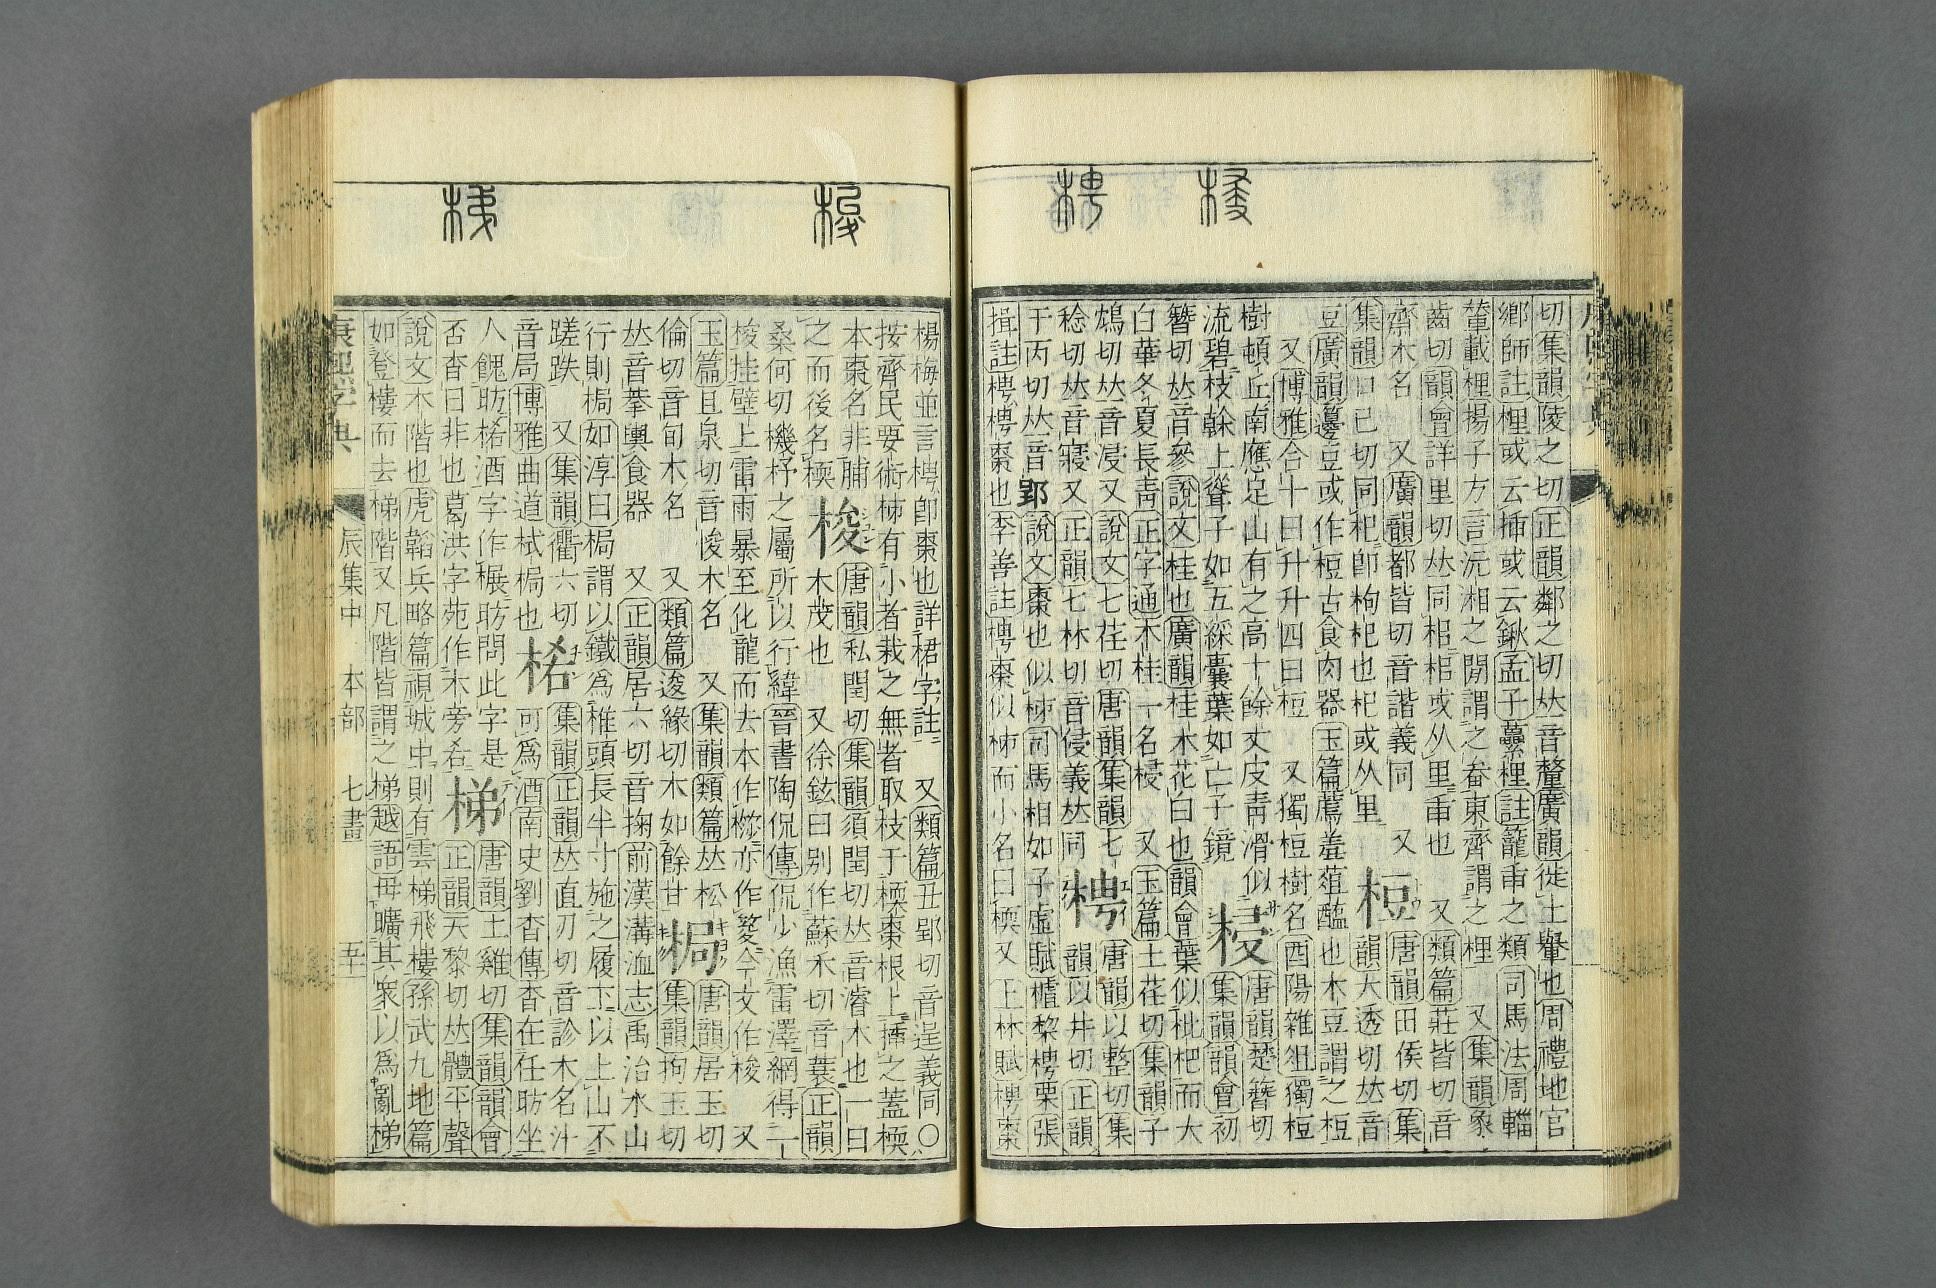 梫
梬
切集韻陵之切正韻鄰之切𠀤音釐廣韻徙土轝也周禮地官
鄉師註梩或云㨍或云鍬孟子虆梩註籠臿之類司馬法周輜
輦載梩揚子方言沅湘之閒謂之畚東齊謂之梩 又集韻象
齒切韻會詳里切𠀤同枱枱或从里臿也 又類篇莊皆切音
齋木名 又廣韻都皆切音諧義同 又
集韻口已切同杞卽枸杞也杞或从里
梪
唐韻田侯切集
韻大透切𠀤音
豆廣韻籩豆或作梪古食肉器玉篇薦羞葅醢也木豆謂之梪
又博雅合十曰升升四曰梪 又獨梪樹名酉陽雜俎獨梪
樹頓丘南應足山有之高十餘丈皮靑滑似
流碧枝榦上聳子如五綵囊葉如亡子鏡
梫
唐韻楚簪切
集韻韻會初
簪切𠀤音參說文桂也廣韻桂木花曰也韻會葉似枇杷而大
白華冬夏長靑正字通木桂一名梫 又玉篇士荏切集韻子
鴆切𠀤音浸又說文七荏切唐韻集韻七
稔切𠀤音寢又正韻七林切音侵義𠀤同
梬
唐韻以整切集
韻以井切正韻
于丙切𠀤音郢說文棗也似柹司馬相如子虛賦樝棃梬栗張
揖註梬梬棗也李善註梬棗似柹而小名曰㮕又上林賦梬棗
梭
梯
楊梅並言梬卽棗也詳桾字註 又類篇丑郢切音逞義同○
按齊民要術柹有小者栽之無者取枝于㮕棗根上揷之蓋㮕
本棗名非脯
之而後名㮕
梭
唐韻私閏切集韻須閏切𠀤音濬木也一曰
木茂也 又徐鉉曰別作蘇禾切音蓑正韻
桑何切機杼之屬所以行緯晉書陶侃傳侃少漁雷澤網得一
梭挂壁上雷雨暴至化龍而去本作㭟亦作䇥今文作梭 又
玉篇且泉切音悛木名 又集韻類篇𠀤松
倫切音旬木名 又類篇逡緣切木如餘甘
梮
唐韻居玉切
集韻拘玉切
𠀤音拲輿食器 又正韻居六切音掬前漢溝洫志禹治水山
行則梮如淳曰梮謂以鐵爲椎頭長半寸施之履下以上山不
蹉跌 又集韻衢六切
音局博雅曲道栻梮也
集韻正韻𠀤直刃切音診木名汁
可爲酒南史劉杳傳杳在任昉坐
人餽昉酒字作榐昉問此字是
否杳曰非也葛洪字苑作木旁
梯
唐韻土雞切集韻韻會
正韻天黎切𠀤體平聲
說文木階也虎韜兵略篇視城中則有雲梯飛樓孫武九地篇
如登樓而去梯階又凡階皆謂之梯越語毋曠其衆以爲亂梯
康熙字典
辰集中 木部 七畫